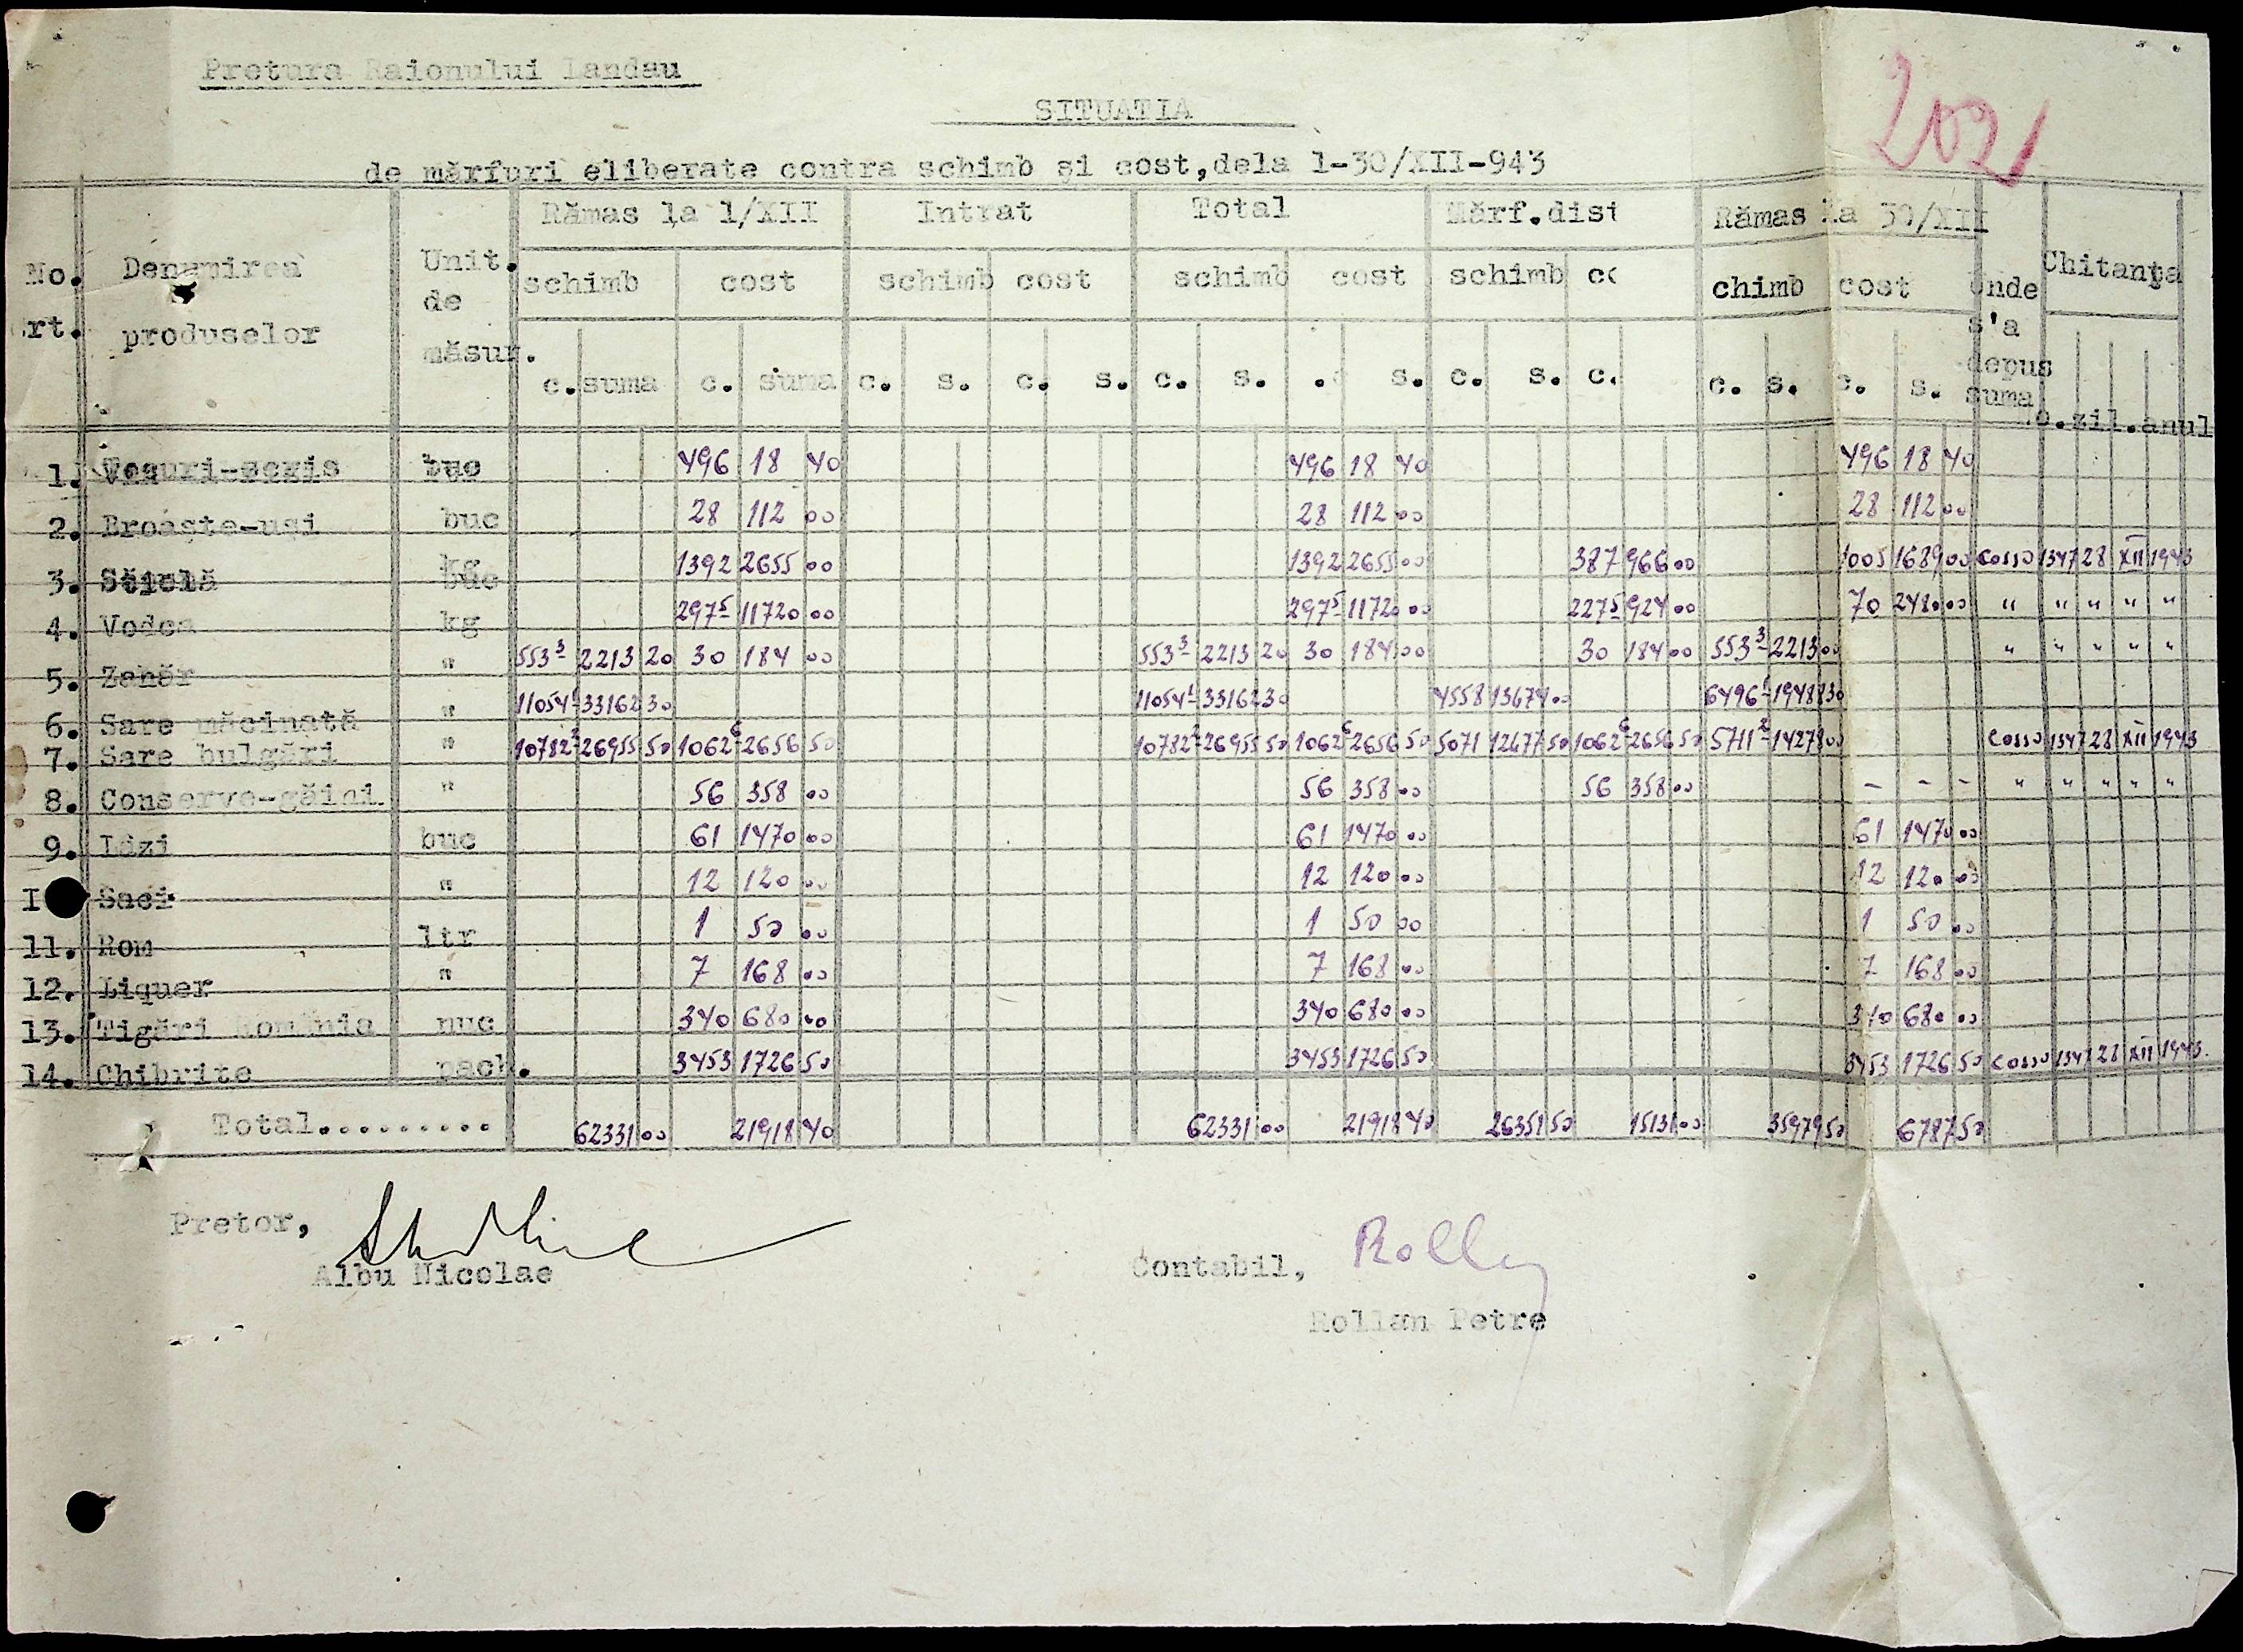 Pretura Raionului Landau
2021
SITUATIA
de mărfuri eliberate contra schimb și cost, dela 1-30/XII-943
No. rt. Denumirea produselor Unit. de măsur. Rămas la 1/XII Intrat Total Mărf.dist Rămas la 30/XII Unde s'a depus suma Chitanța
schimb cost schimb cost schimb cost schimb co chimb cost
c. suma c. suma c. s. c. s. c. s. . s. c. s. c. c. s. c. s. o. zil. anul
1. buc 496 18 40 496 18 40 496 18 40
2. Broaște-uși buc 28 112 00 28 112 00 28 112 00
3. Sticlă 1392 2655 00 1392 2655 00 387 966 00 1005 1689 00 Cosso 1347 28 XII 1943
4. Vodca kg 297 5 11720 00 297 5 1172 00 227 5 924 00 70 248 00 " " " " "
5. Zahăr " 553 3 2213 20 30 184 00 553 3 2213 20 30 184 00 30 184 00 553 3 2213 00 " " " " "
6. Sare măcinată " 11054 1 33162 30 11054 1 33162 30 4558 13674 00 6496 1 19488 30
7. Sare bulgări " 10782 2 26955 50 1062 6 2656 50 10782 2 26955 50 1062 6 2656 50 5071 12677 50 1062 6 2656 50 5711 2 14278 00 Cosso 1347 28 XII 1943
8. Conserve-găini " 56 358 00 56 358 00 56 358 00 - - - " " " " "
9. Lăzi buc 61 1470 00 61 1470 00 61 1470 00
I Saci " 12 120 00 12 120 00 12 120 00
11. Rom ltr 1 50 00 1 50 00 1 50 00
12. Liquer " 7 168 00 7 168 00 7 168 00
13. Tigări România nuc 340 680 00 340 680 00 340 680 00
14. Chibrite pach. 3453 1726 50 3453 1726 50 3453 1726 50 Cosso 1347 28 XII 1943.
Total......... 62331 00 21918 40 62331 00 21918 40 26351 50 15131 00 35979 50 6787 50
Pretor,
Albu Nicolae
Contabil, Rolly
Rollan Petre